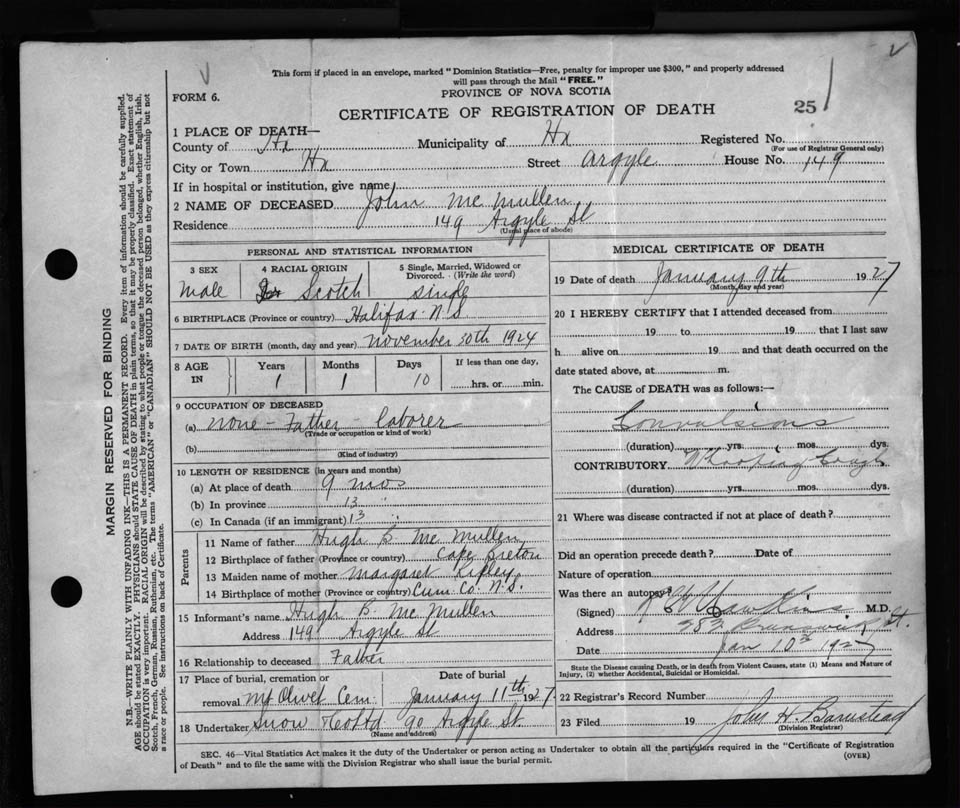 This form if placed in an envelope, marked "Dominion Statistics—Free, penalty for improper use $300," and properly addressed
will pass through the Mail "FREE."
FORM 6.
PROVINCE OF NOVA SCOTIA
CERTIFICATE OF REGISTRATION OF DEATH
25
1 PLACE OF DEATH—
County of Hx Municipality of Hx Registered No.
(For use of Registrar General only)
City or Town Hx Street Argyle House No. 149
If in hospital or institution, give name
2 NAME OF DECEASED John Mc Mullen
Residence 149 Argyle St
(Usual place of abode)
PERSONAL AND STATISTICAL INFORMATION
3 SEX
Male
4 RACIAL ORIGIN
Scotch
5 Single, Married, Widowed or
Divorced. (Write the word)
single
6 BIRTHPLACE (Province or country) Halifax N.S.
7 DATE OF BIRTH (month, day and year) November 30th 1924
8 AGE IN
Years 1
Months 1
Days 10
If less than one day,
hrs. or min.
9 OCCUPATION OF DECEASED
(a) None - Father - laborer
(Trade or occupation or kind of work)
(b)
(Kind of industry)
10 LENGTH OF RESIDENCE (in years and months)
(a) At place of death 9 mos
(b) In province 13 "
(c) In Canada (if an immigrant) 13 "
Parents
11 Name of father Hugh B. Mc Mullen
12 Birthplace of father (Province or country) Cape Breton
13 Maiden name of mother Margaret Ripley
14 Birthplace of mother (Province or country) Cum. Co. N.S.
15 Informant's name Hugh B. Mc Mullen
Address 149 Argyle St
16 Relationship to deceased Father
17 Place of burial, cremation or
removal Mt Olivet Cem
Date of burial
January 11th 1927
18 Undertaker Snow & Co Ltd 90 Argyle St.
(Name and address)
MEDICAL CERTIFICATE OF DEATH
19 Date of death January 9th 1927
(Month, day and year)
20 I HEREBY CERTIFY that I attended deceased from
19 to 19 that I last saw
h alive on 19 and that death occurred on the
date stated above, at m.
The CAUSE of DEATH was as follows:—
Convulsions
(duration) yrs. mos. dys.
CONTRIBUTORY Whooping Cough
(duration) yrs. mos. dys.
21 Where was disease contracted if not at place of death?
Did an operation precede death? Date of
Nature of operation
Was there an autopsy?
(Signed) Hawkins M.D.
Address 282 Brunswick St.
Date Jan 10th 1927
State the Disease causing Death, or in death from Violent Causes, state (1) Means and Nature of
Injury, (2) whether Accidental, Suicidal or Homicidal.
22 Registrar's Record Number
23 Filed 19 John H. Barnstead
(Division Registrar)
SEC. 46—Vital Statistics Act makes it the duty of the Undertaker or person acting as Undertaker to obtain all the particulars required in the "Certificate of Registration
of Death" and to file the same with the Division Registrar who shall issue the burial permit.
(OVER)
MARGIN RESERVED FOR BINDING
N.B.—WRITE PLAINLY WITH UNFADING INK—THIS IS A PERMANENT RECORD. Every item of information should be carefully supplied.
AGE should be stated EXACTLY. PHYSICIANS should STATE CAUSE OF DEATH in plain terms, so that it may be properly classified. Exact statement of
OCCUPATION is very important. RACIAL ORIGIN will be described by stating to what people or tongue the deceased person belonged, whether English, Irish,
Scotch, French, German, Russian, Ruthenian, etc. The terms "AMERICAN" or "CANADIAN" SHOULD NOT BE USED as they express citizenship but not
a race or people. See instructions on back of Certificate.